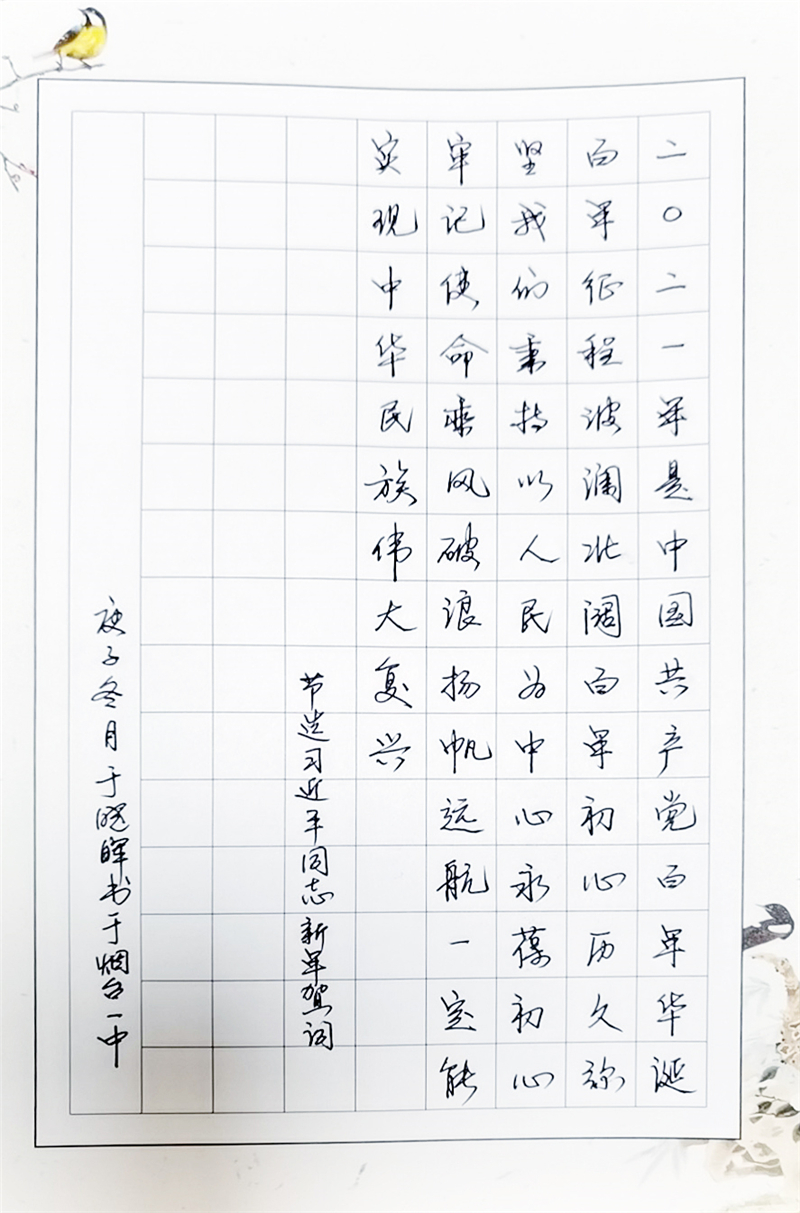 二〇二一年是中国共产党百年华诞
百年征程波澜壮阔百年初心历久弥
坚我们秉持以人民为中心永葆初心
牢记使命乘风破浪扬帆远航一定能
实现中华民族伟大复兴
节选习近平同志新年贺词
庚子冬月于晓晖书于烟台一中